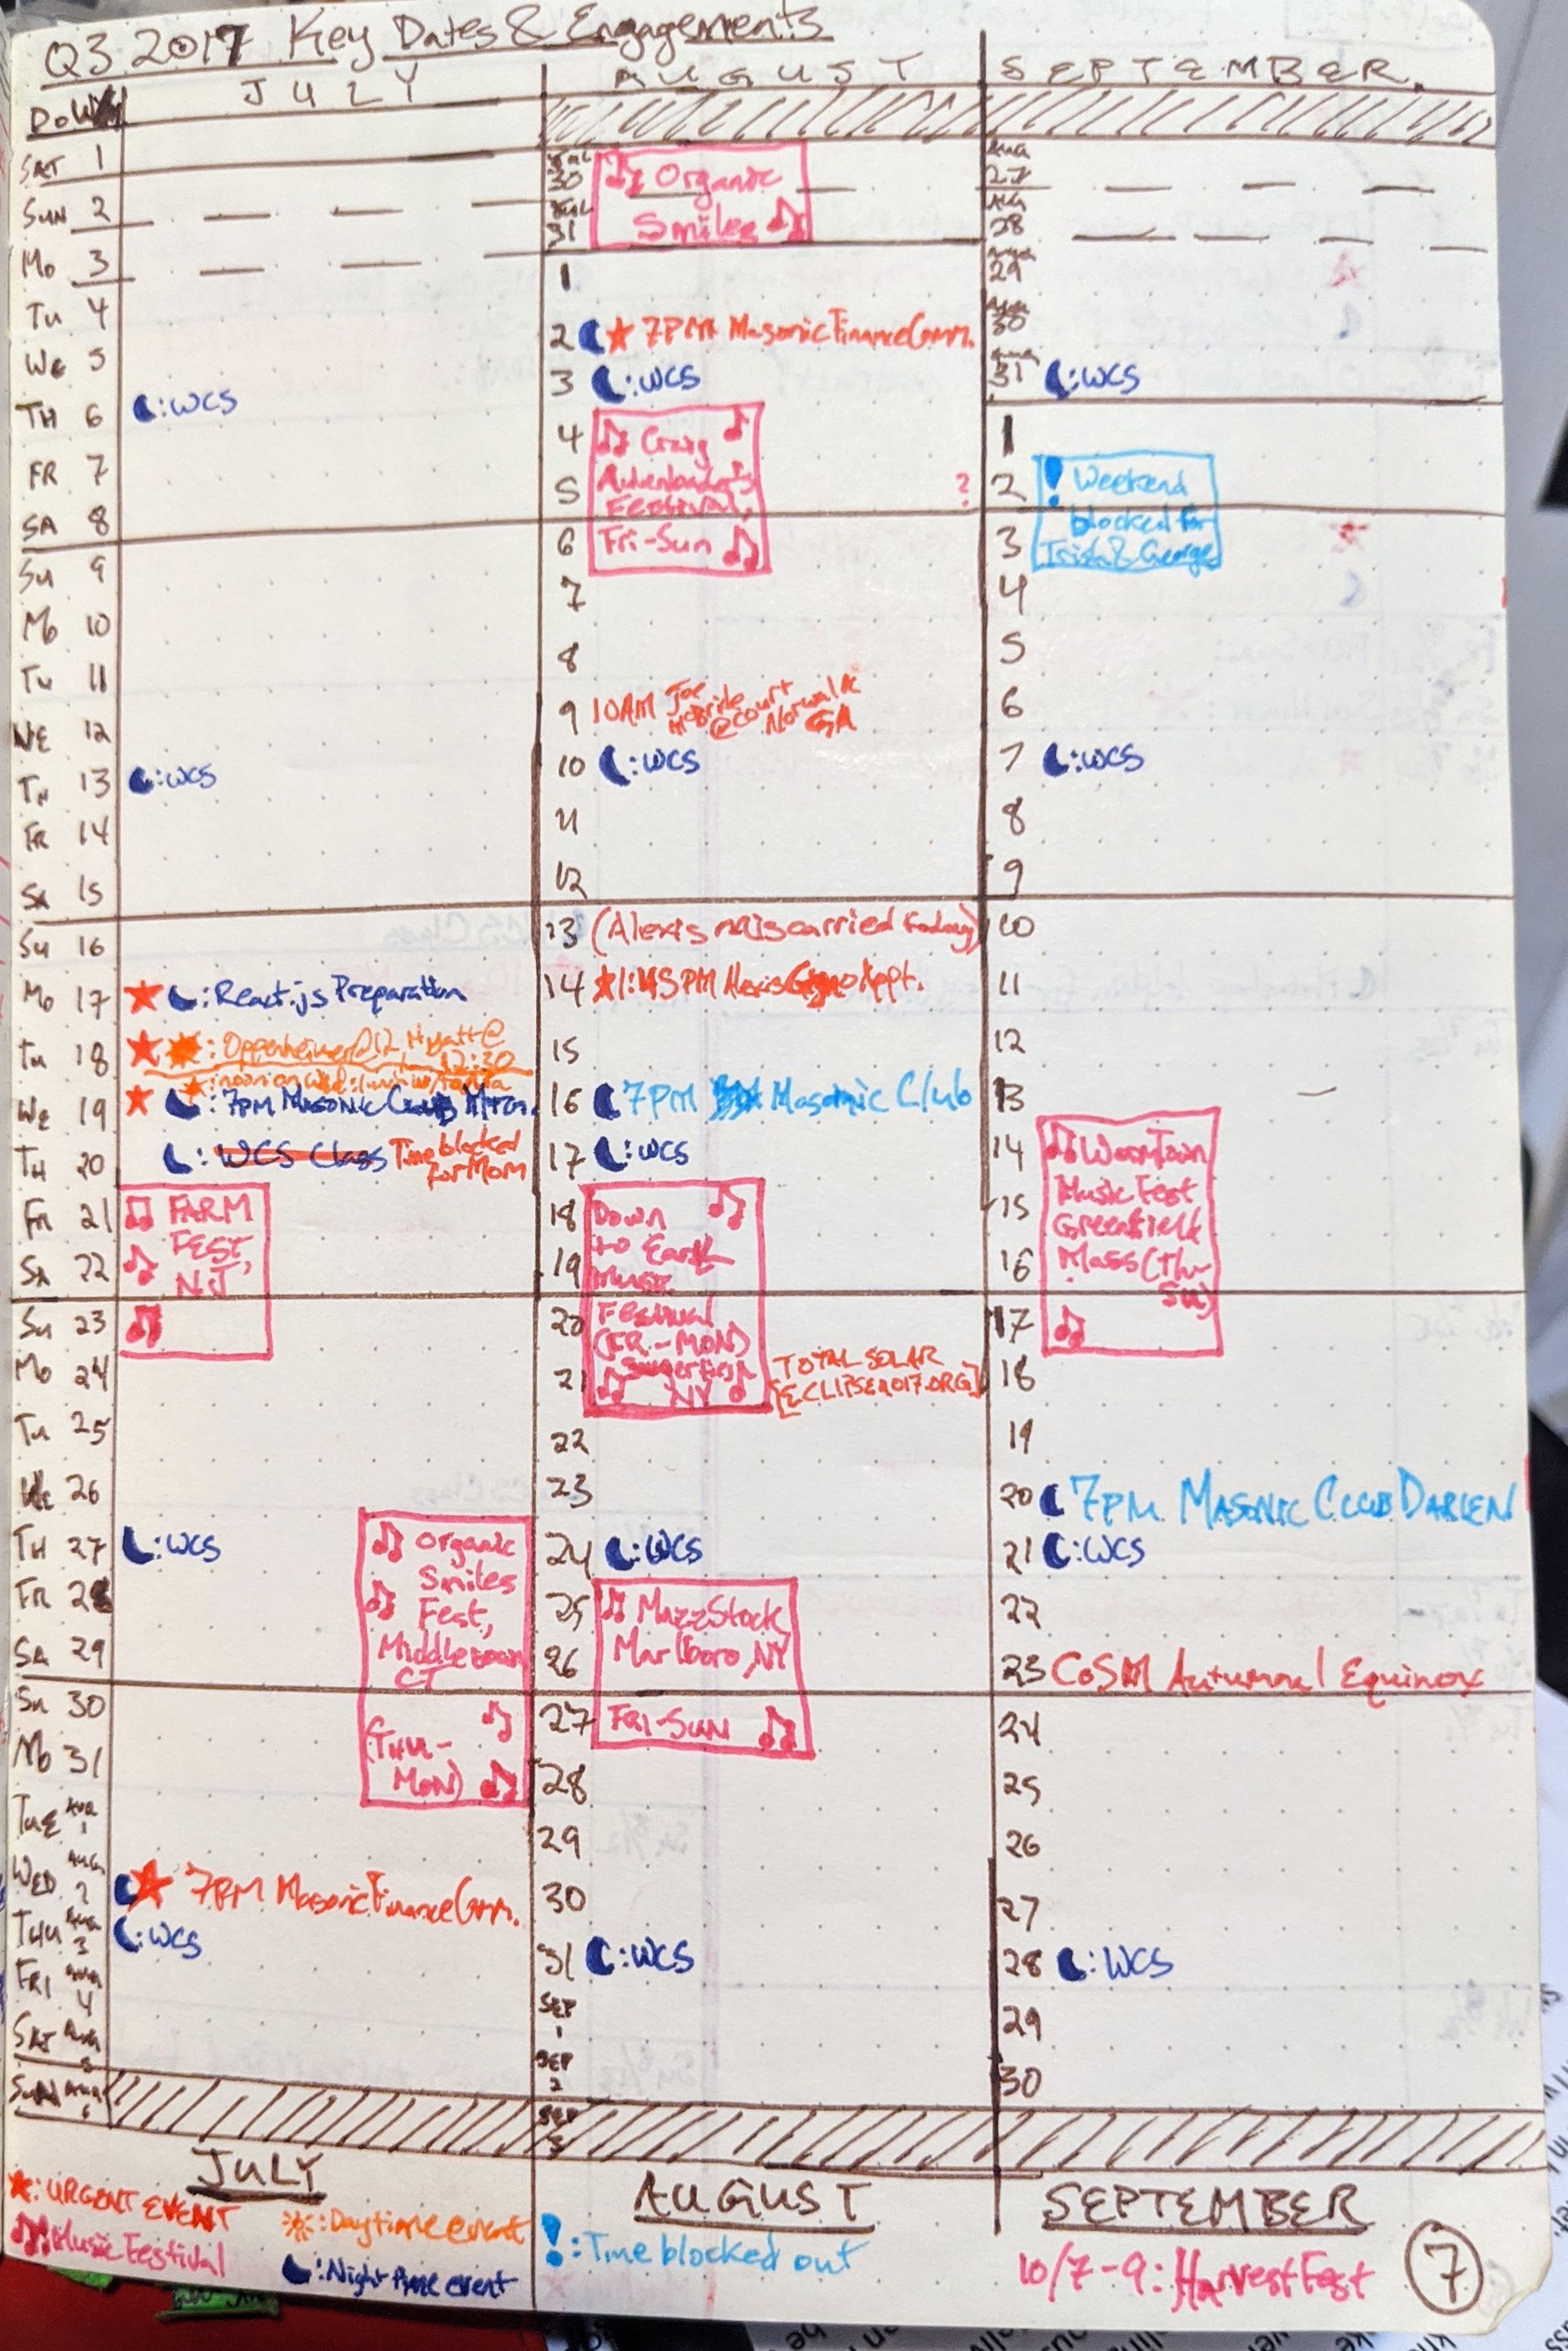 Q3 2017 Key Dates & Engagements
JULY
AUGUST
SEPTEMBER
DoW
SAT 1
SUN 2
Mo 3
Tu 4
We 5
TH 6 :WCS
FR 7
SA 8
Su 9
Mo 10
Tu 11
WE 12
TH 13 :WCS
FR 14
SA 15
Su 16
Mo 17 :React.js Preparation
Tu 18 : Oppenheimer@12 Hyatt@ 12:30
:noon on Wed:lunch w/
WE 19 :7PM MASONIC CLUB MTG.
TH 20 : WCS Class Time blocked
for Mom
FR 21 FARM
FEST,
SA 22 NJ
Su 23
Mo 24
Tu 25
WE 26
TH 27 :WCS
FR 28
SA 29
Su 30
Mo 31
Organic
Smiles
Fest,
Middletown
CT
(THU-
MON)
TUE AUG 1
WED AUG 2 7PM Masonic Finance Comm.
THU AUG 3 :WCS
FRI AUG 4
SAT AUG 5
SUN AUG 6
JUL 30 Organic
JUL 31 Smiles
1
2 7PM Masonic Finance Comm.
3 :WCS
4 Craig
5 ?
Festival,
6 Fri-Sun
7
8
9 10AM Joe McBride @court Norwalk GA
10 :WCS
11
12
13 (Alexis miscarried today)
14 1:45PM Alexis Gyno Appt.
15
16 7PM Masonic Club
17 :WCS
18 Down
to Earth
19 Music
20 Festival
(FR.-MON)
21 NY
TOTAL SOLAR
[ECLIPSE2017.ORG]
22
23
24 :WCS
25 MazzStock,
26 Marlboro, NY
27 FRI-SUN
28
29
30
31 :WCS
SEP 1
SEP 2
SEP 3
AUG 27
AUG 28
AUG 29
AUG 30
AUG 31 :WCS
1
2 ! Weekend
blocked for
3 Trish & George
4
5
6
7 :WCS
8
9
10
11
12
13
14 WormTown
15 Music Fest
Greenfield
16 Mass (Th-
Su)
17
18
19
20 7PM MASONIC CLUB DARIEN
21 :WCS
22
23 CoSM Autumnal Equinox
24
25
26
27
28 :WCS
29
30
JULY
AUGUST
SEPTEMBER
:URGENT EVENT
:Daytime event
:Music Festival
:Night time event
!:Time blocked out
10/7-9: HarvestFest
7